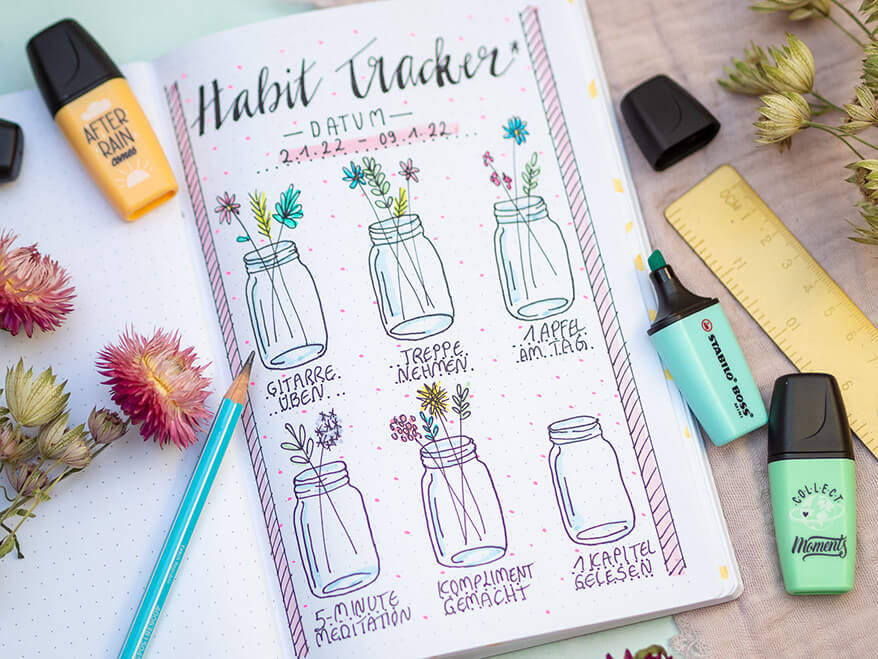 Habit Tracker*
— DATUM —
2.1.22 — 09.1.22
GITARRE
ÜBEN
TREPPE
NEHMEN
1 APFEL
AM TAG
5-MINUTE
MEDITATION
KOMPLIMENT
GEMACHT
1 KAPITEL
GELESEN
AFTER
RAIN
comes
STABILO BOSS
MINI
COLLECT
Moments